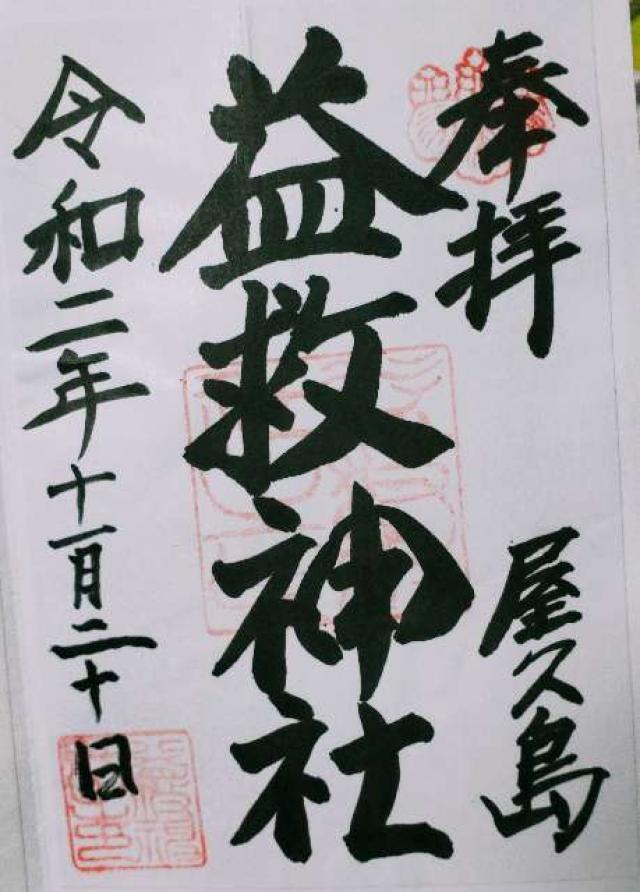 奉拝
屋久島
益救神社
令和二年十一月二十日